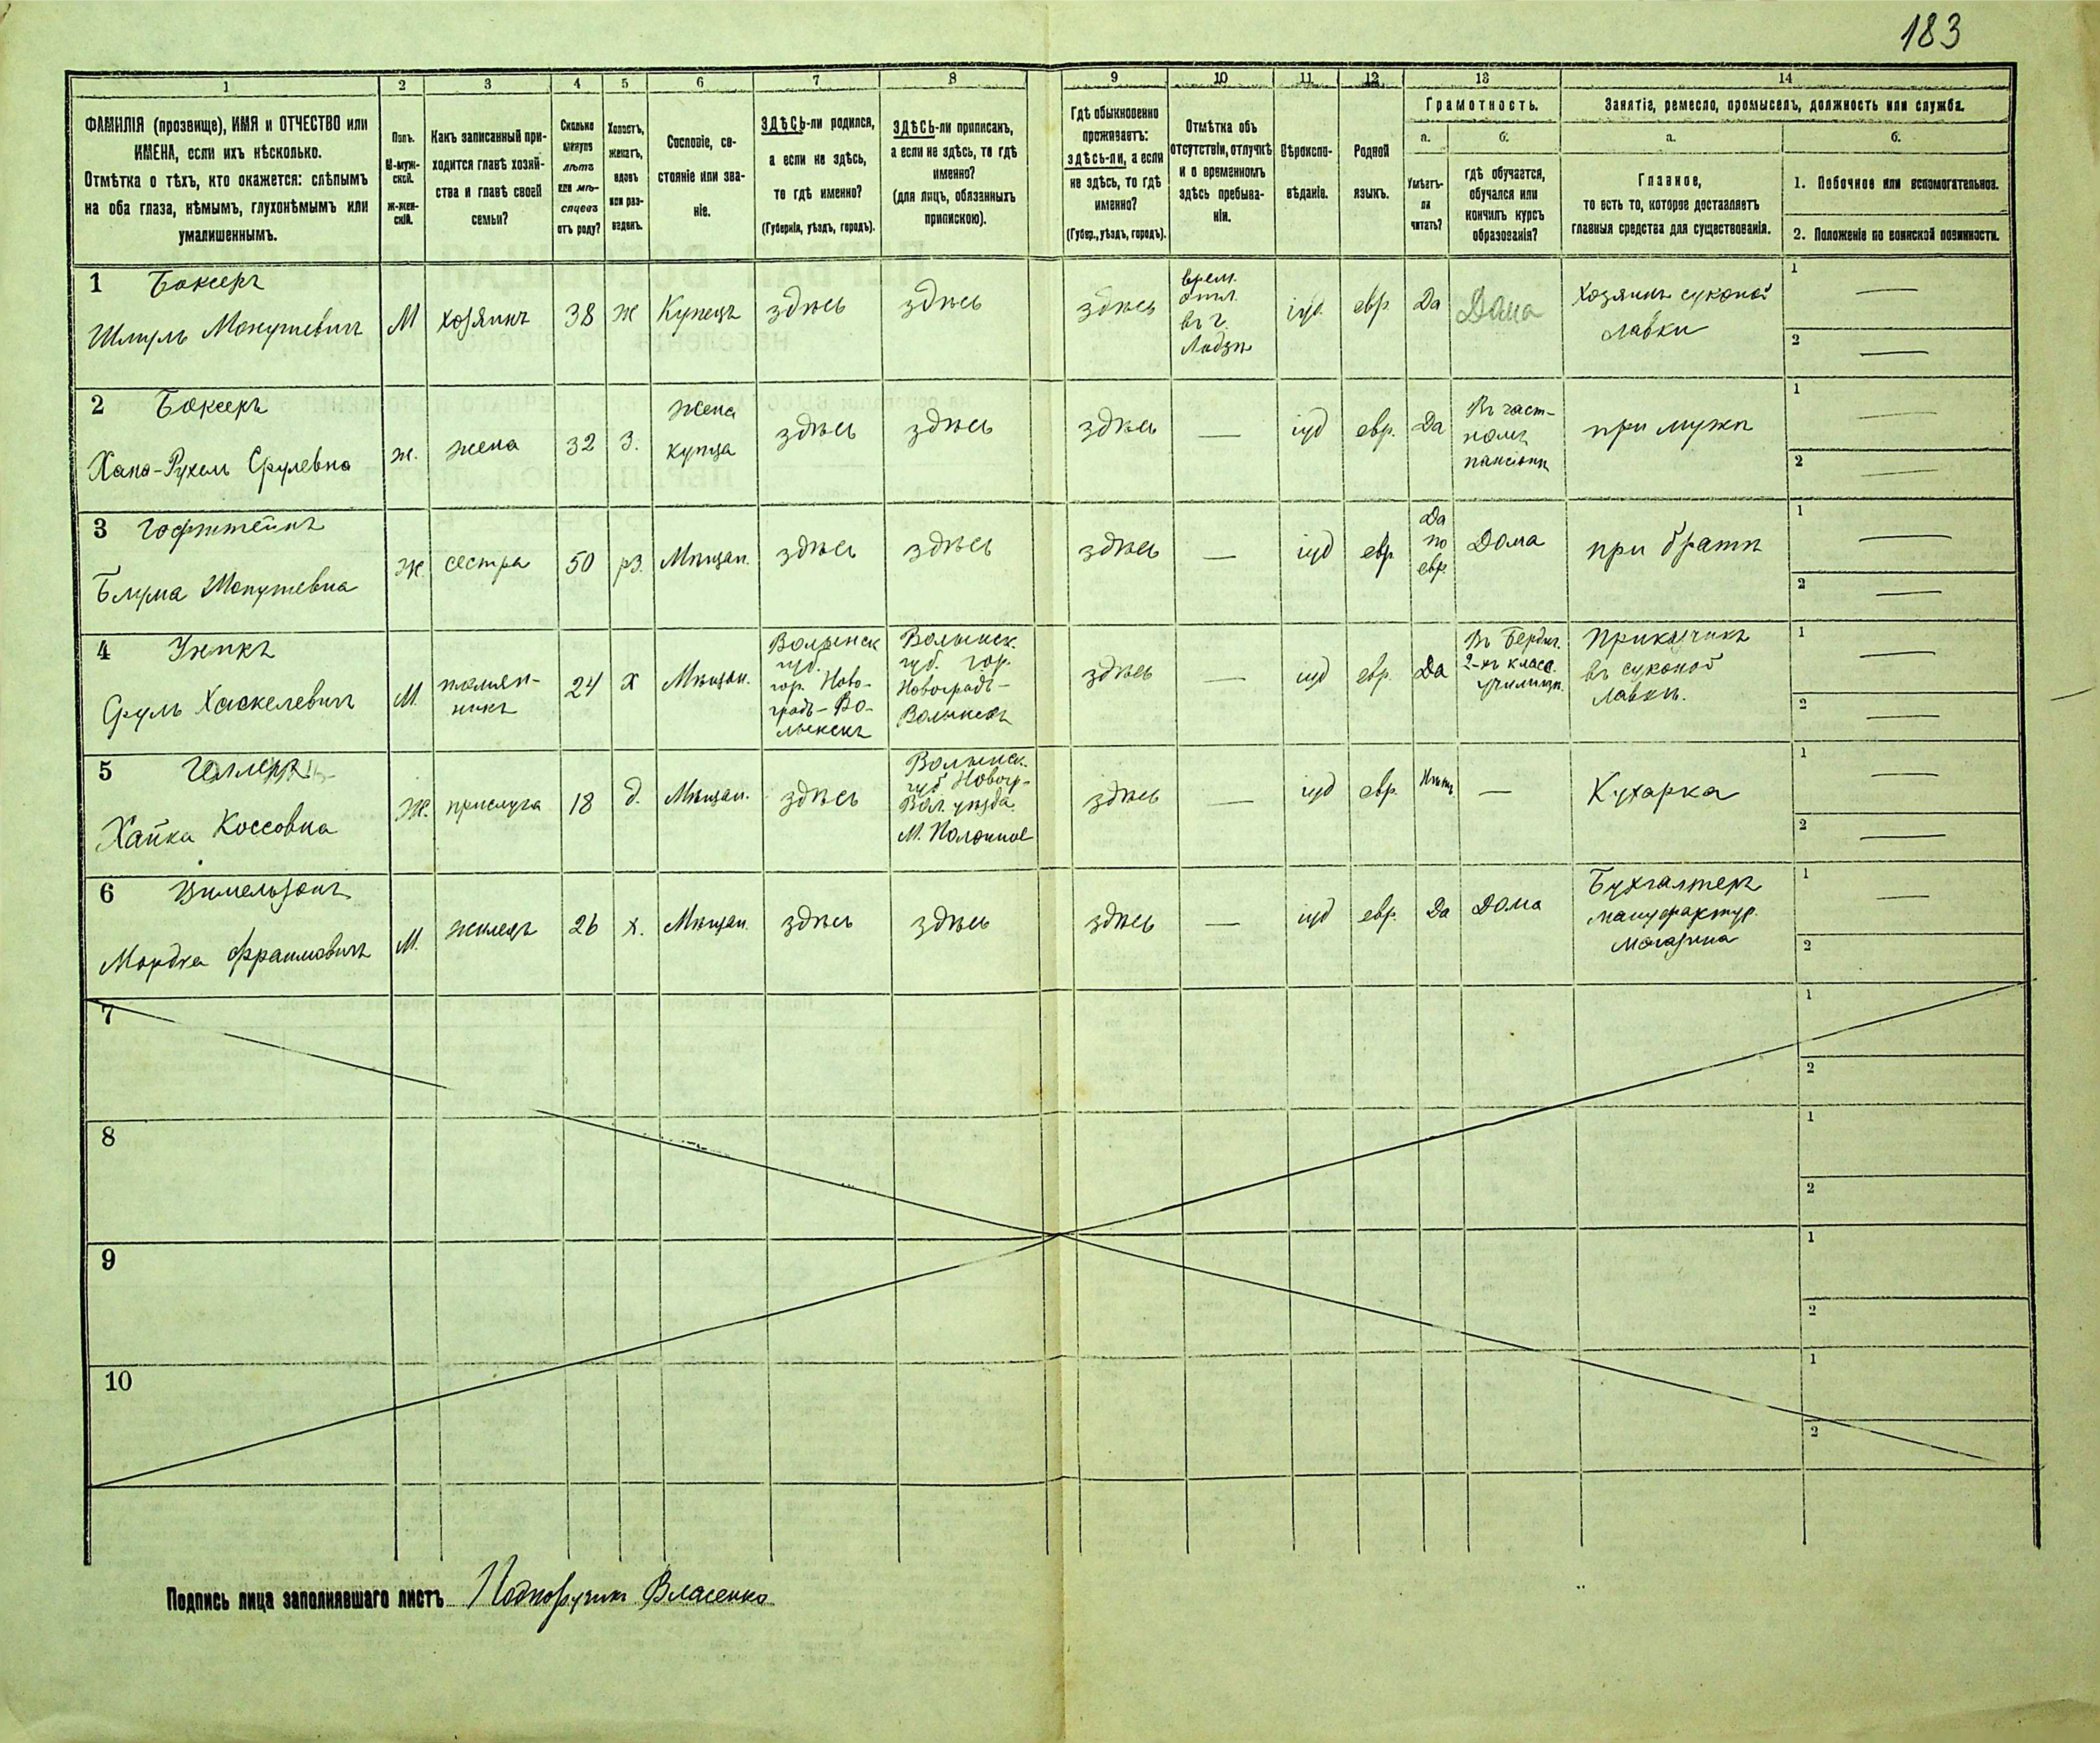 183
1
2
3
4
5
6
7
8
9
10
11
12
13
14
ФАМИЛІЯ (прозвище), ИМЯ и ОТЧЕСТВО или
ИМЕНА, если ихъ нѣсколько.
Отмѣтка о тѣхъ, кто окажется: слѣпымъ
на оба глаза, нѣмымъ, глухонѣмымъ или
умалишеннымъ.
Полъ.
М-муж-
ской.
Ж-жен-
скій.
Какъ записанный при-
ходится главѣ хозяй-
ства и главѣ своей
семьи?
Сколько
минуло
лѣтъ
или мѣ-
сяцевъ
отъ роду?
Холостъ,
женатъ,
вдовъ
или раз-
веденъ.
Сословіе, со-
стояніе или зва-
ніе.
ЗДѢСЬ-ли родился,
а если не здѣсь,
то гдѣ именно?
(Губернія, уѣздъ, городъ).
ЗДѢСЬ-ли приписанъ,
а если не здѣсь, то гдѣ
именно?
(для лицъ, обязанныхъ
припискою).
Гдѣ обыкновенно
проживаетъ:
здѣсь-ли, а если
не здѣсь, то гдѣ
именно?
(Губер., уѣздъ, городъ).
Отмѣтка объ
отсутствіи, отлучкѣ
и о временномъ
здѣсь пребыва-
ніи.
Вѣроиспо-
вѣданіе.
Родной
языкъ.
Грамотность.
а.
б.
Умѣетъ-
ли
читать?
гдѣ обучается,
обучался или
кончилъ курсъ
образованія?
Занятіе, ремесло, промыселъ, должность или служба.
а.
б.
Главное,
то есть то, которое доставляетъ
главныя средства для существованія.
1. Побочное или вспомогательное.
2. Положеніе по воинской повинности.
1 Боксеръ
Шмуль Монушевичъ
М
хозяинъ
38
ж
Купецъ
здѣсь
здѣсь
здѣсь
врем.
отл.
въ г.
Лодзь
іуд.
евр.
Да
Дома
Хозяинъ суконой
лавки
1 —
2 —
2 Боксеръ
Хана-Рухель Срулевна
ж.
жена
32
З.
жена
купца
здѣсь
здѣсь
здѣсь
—
іуд
евр.
Да
Въ част-
номъ
пансіонѣ
при мужѣ
1 —
2 —
3 Гофштейнъ
Блума Монушевна
Ж.
сестра
50
рз.
Мѣщан.
здѣсь
здѣсь
здѣсь
—
іуд
евр
Да
по
евр
Дома
при братѣ
1 —
2 —
4
Сруль Хаскелевичъ
М.
племян-
никъ
24
х
Мѣщан.
Волынск
губ.
гор. Ново-
градъ-Во-
лынскъ
Волынск.
губ. гор.
Новоградъ-
Волынскъ
здѣсь
—
іуд
евр.
Да
Въ Бердич.
2-хъ класс.
училищѣ
Прикащикъ
въ суконой
лавкѣ.
1 —
2 —
5
Хайка Коссовна
Ж.
прислуга
18
д.
Мѣщан.
здѣсь
Волынск.
губ Новогр-
Вол уѣзда
М. Полонное
здѣсь
—
іуд
евр.
Нѣтъ
—
Кухарка
1 —
2 —
6 Цимельзонъ
Мордка Фраимовичъ
М.
жилецъ
26
х.
Мѣщан.
здѣсь
здѣсь
здѣсь
—
іуд
евр.
Да
Дома
Бухгалтеръ
мануфактур.
магазина
1 —
2
7
1
2
8
1
2
9
1
2
10
1
2
Подпись лица заполнявшаго листъ Подпоручикъ Власенко